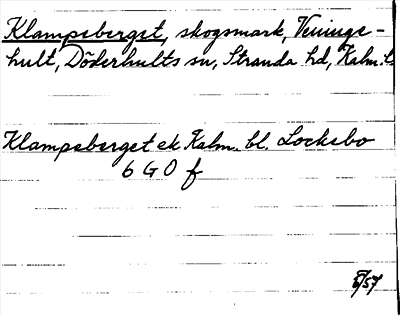 Klampeberget, skogsmark, Veninge-
hult, Döderhults sn, Stranda hd, Kalm. l.
Klampeberget ek. Kalm. bl. Locksbo
6 G 0 f
5/57